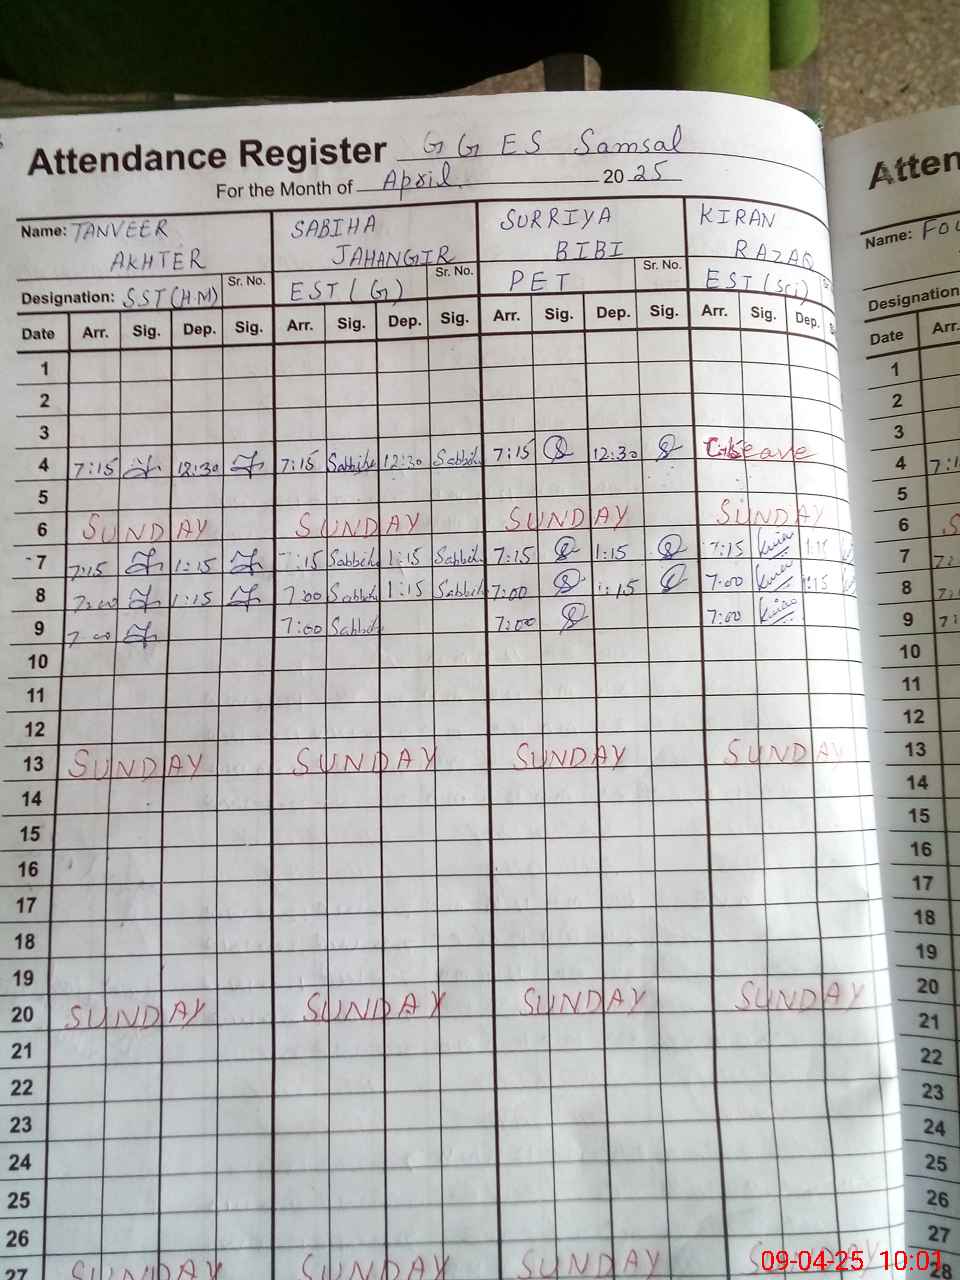 Attendance Register GGES Samsal
For the Month of April 2025
Name: TANVEER AKHTER SABIHA JAHANGIR SURRIYA BIBI KIRAN RAZAQ
Designation: SST(H.M) Sr. No. EST (G) Sr. No. PET Sr. No. EST (Sci)
Date Arr. Sig. Dep. Sig. Arr. Sig. Dep. Sig. Arr. Sig. Dep. Sig. Arr. Sig. Dep.
1
2
3
4 7:15 12:30 7:15 12:30 7:15 12:30 Leave
5
6 SUNDAY SUNDAY SUNDAY SUNDAY
7 7:15 1:15 7:15 1:15 7:15 1:15 7:15 1:15
8 7:00 1:15 7:00 1:15 7:00 1:15 7:00 1:15
9 7:00 7:00 7:00 7:00
10
11
12
13 SUNDAY SUNDAY SUNDAY SUNDAY
14
15
16
17
18
19
20 SUNDAY SUNDAY SUNDAY SUNDAY
21
22
23
24
25
26
27 SUNDAY SUNDAY SUNDAY SUNDAY
Name:
Designation
Date Arr.
1
2
3
4
5
6
7
8
9
10
11
12
13
14
15
16
17
18
19
20
21
22
23
24
25
26
27
28
09-04-25 10:01